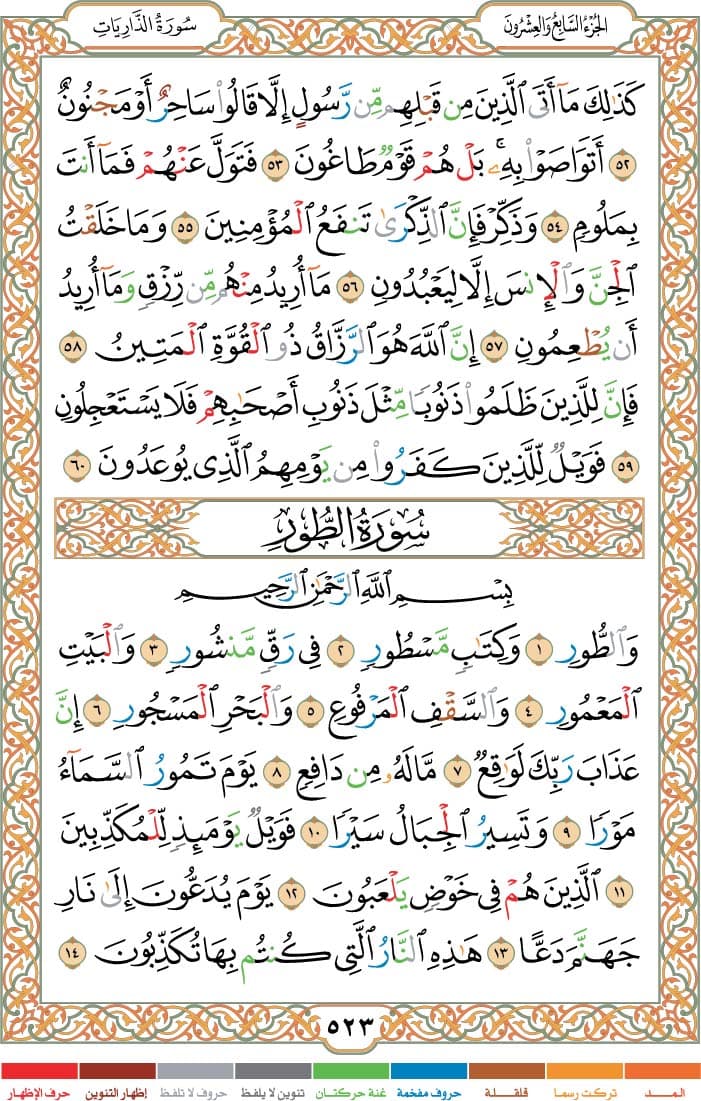 الجُزْءُ السَّابِعُ وَالعِشْرُونَ
سُورَةُ الذَّارِيَاتِ
كَذَٰلِكَ مَآ أَتَى ٱلَّذِينَ مِن قَبْلِهِم مِّن رَّسُولٍ إِلَّا قَالُوا۟ سَاحِرٌ أَوْ مَجْنُونٌ
٥٢ أَتَوَاصَوْا۟ بِهِۦ ۚ بَلْ هُمْ قَوْمٌ طَاغُونَ ٥٣ فَتَوَلَّ عَنْهُمْ فَمَآ أَنتَ
بِمَلُومٍ ٥٤ وَذَكِّرْ فَإِنَّ ٱلذِّكْرَىٰ تَنفَعُ ٱلْمُؤْمِنِينَ ٥٥ وَمَا خَلَقْتُ
ٱلْجِنَّ وَٱلْإِنسَ إِلَّا لِيَعْبُدُونِ ٥٦ مَآ أُرِيدُ مِنْهُم مِّن رِّزْقٍ وَمَآ أُرِيدُ
أَن يُطْعِمُونِ ٥٧ إِنَّ ٱللَّهَ هُوَ ٱلرَّزَّاقُ ذُو ٱلْقُوَّةِ ٱلْمَتِينُ ٥٨
فَإِنَّ لِلَّذِينَ ظَلَمُوا۟ ذَنُوبًا مِّثْلَ ذَنُوبِ أَصْحَٰبِهِمْ فَلَا يَسْتَعْجِلُونِ
٥٩ فَوَيْلٌ لِّلَّذِينَ كَفَرُوا۟ مِن يَوْمِهِمُ ٱلَّذِى يُوعَدُونَ ٦٠
سُورَةُ الطُّورِ
بِسْمِ ٱللَّهِ ٱلرَّحْمَٰنِ ٱلرَّحِيمِ
وَٱلطُّورِ ١ وَكِتَٰبٍ مَّسْطُورٍ ٢ فِى رَقٍّ مَّنشُورٍ ٣ وَٱلْبَيْتِ
ٱلْمَعْمُورِ ٤ وَٱلسَّقْفِ ٱلْمَرْفُوعِ ٥ وَٱلْبَحْرِ ٱلْمَسْجُورِ ٦ إِنَّ
عَذَابَ رَبِّكَ لَوَٰقِعٌ ٧ مَّا لَهُۥ مِن دَافِعٍ ٨ يَوْمَ تَمُورُ ٱلسَّمَآءُ
مَوْرًا ٩ وَتَسِيرُ ٱلْجِبَالُ سَيْرًا ١٠ فَوَيْلٌ يَوْمَئِذٍ لِّلْمُكَذِّبِينَ
١١ ٱلَّذِينَ هُمْ فِى خَوْضٍ يَلْعَبُونَ ١٢ يَوْمَ يُدَعُّونَ إِلَىٰ نَارِ
جَهَنَّمَ دَعًّا ١٣ هَٰذِهِ ٱلنَّارُ ٱلَّتِى كُنتُم بِهَا تُكَذِّبُونَ ١٤
٥٢٣
المـــد تركت رسما قلقلة حروف مفخمة غنة حركتان تنوين لا يلفظ حروف لا تلفظ إظهار التنوين حرف الإظهار